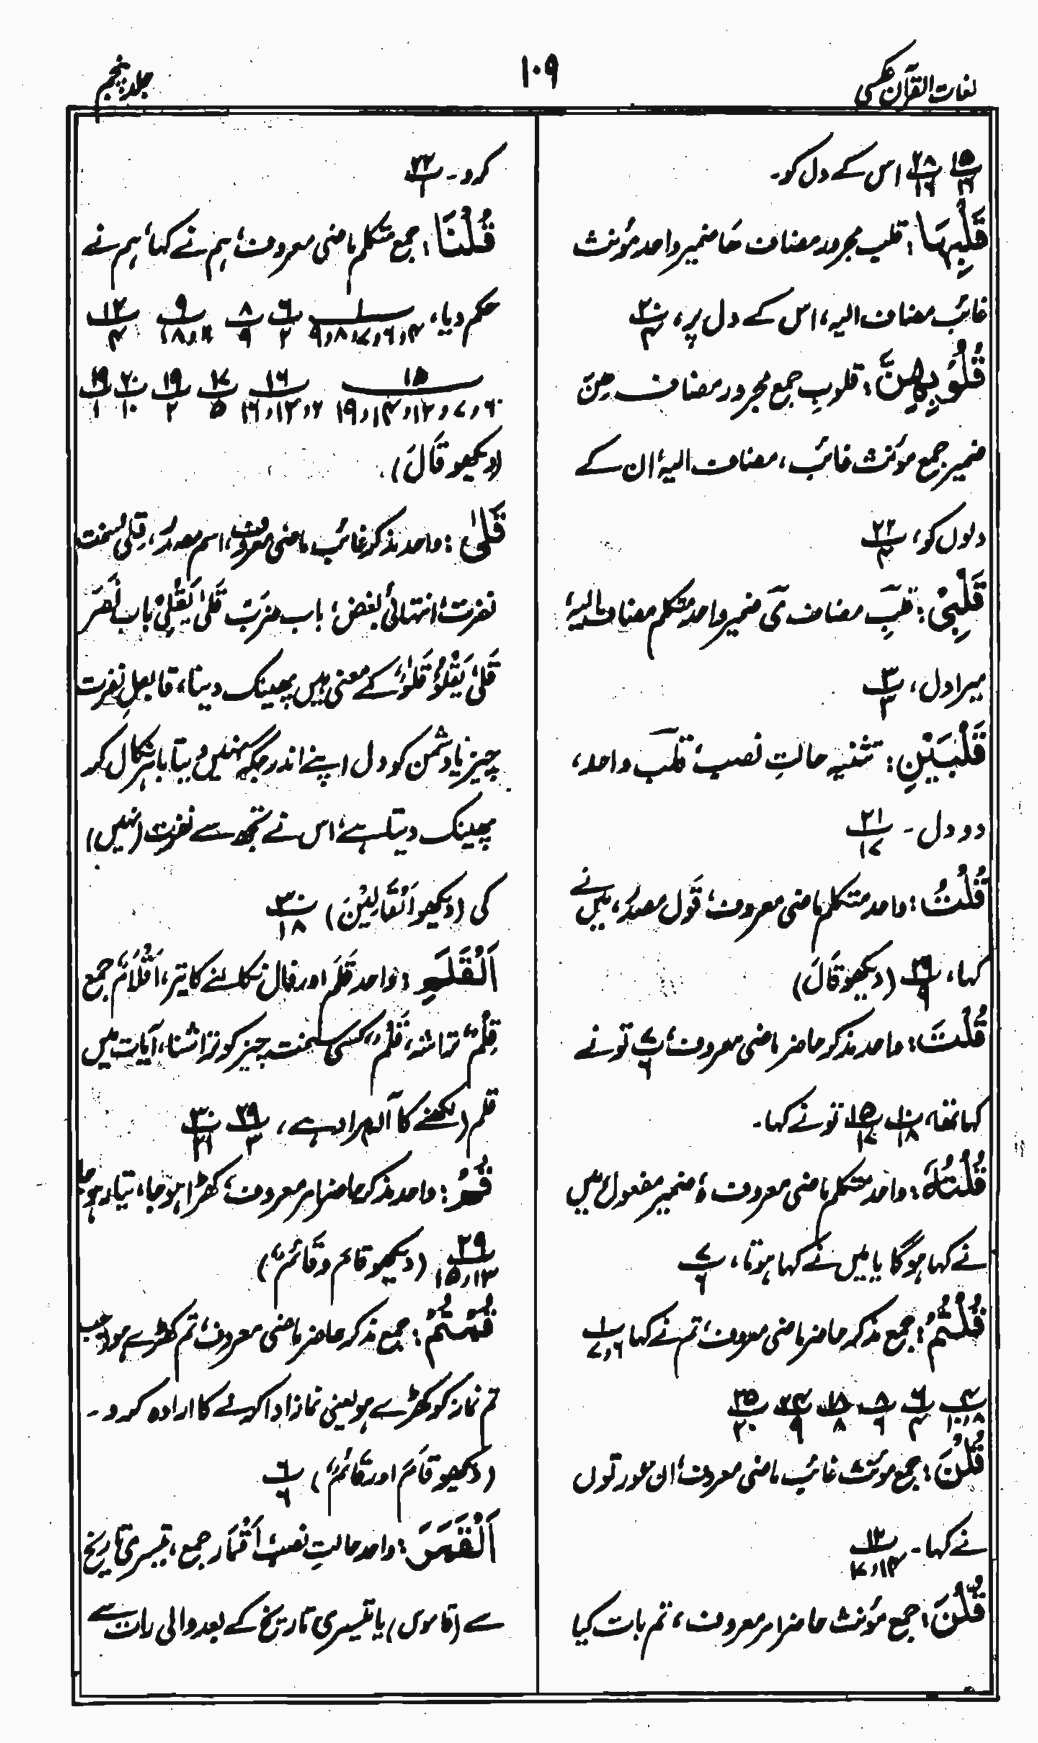 لغات القرآن عکسی
۱۰۹
جلد پنجم
۱۵/۱۶ ۲۸/۱۶ اس کے دل کو۔
قَلْبِهَا: قلب مجرور مضاف ھا ضمیر واحد مؤنث
غائب مضاف الیہ، اس کے دل پر، ۲۰/۴
قُلُوْبِهِنَّ: قلوبِ جمع مجرور مضاف ھِنَّ
ضمیر جمع مؤنث غائب، مضاف الیہ، ان کے
دلوں کو، ۲۲/۴
قَلْبِیْ: قلبِ مضاف یَ ضمیر واحد متکلم مضاف الیہ،
میرا دل، ۳/۳
قَلْبَیْنِ: تثنیہ حالتِ نصب، قلب واحد،
دو دل۔ ۲۱/۱۷
قُلْتُ: واحد متکلم ماضی معروف، قَول مصدر، میں نے
کہا، ۲۹/۹ (دیکھو قَالَ)
قُلْتَ: واحد مذکر حاضر ماضی معروف، ۷/۶ تو نے
کہا تھا، ۱۰/۱۸ ۱۵/۱۷ تو نے کہا۔
قُلْتُهٗ: واحد متکلم ماضی معروف ہٗ ضمیر مفعول، میں
نے کہا ہوگا یا میں نے کہا ہوتا، ۷/۶
قُلْتُمْ: جمع مذکر حاضر ماضی معروف، تم نے کہا ۱/۶٫۷
۴/۸٫۱۰ ۶/۴ ۸/۶ ۱۸/۸ ۲۴/۹ ۲۵/۲۰
قُلْنَ: جمع مؤنث غائب ماضی معروف، ان عورتوں
نے کہا۔ ۱۲/۱۴٫۷
قُلْنَ: جمع مؤنث حاضر امر معروف، تم بات کیا
کرو۔ ۲۲/۱
قُلْنَا: جمع متکلم ماضی معروف، ہم نے کہا، ہم نے
حکم دیا، ۱/۴٫۶٫۷٫۸٫۹ ۶/۲ ۸/۹ ۹/۱۱٫۱۸ ۱۲/۴
۱۵/۶٫۷٫۱۲٫۱۴٫۱۹ ۱۶/۲٫۱۲٫۱۶ ۱۷/۵ ۱۹/۲ ۲۰/۱۰ ۲۹/۱
(دیکھو قَالَ)۔
قَلٰی: واحد مذکر غائب ماضی معروف، اسم مصدر، قِلٰی سخت
نفرت، انتہائی بغض، باب ضَرَبَ قَلٰی یَقْلِیْ باب نَصَرَ
قَلٰی یَقْلُوْ قَلْوٌ کے معنی ہیں پھینک دینا، قابلِ نفرت
چیز یا دشمن کو دل اپنے اندر جگہ نہیں دیتا باہر نکال کر
پھینک دیتا ہے، اس نے تجھ سے نفرت (نہیں)
کی (دیکھو اَلْقَالِیْنَ) ۳۰/۱۸
اَلْقَلَمِ: واحد قَلَم اور فال نکالنے کا تیر، اَقْلَامٌ جمع
قَلْمٌ تراشہ، قَلْمٌ، کسی سخت چیز کو تراشنا، آیات میں
قلم (لکھنے کا آلہ مراد ہے، ۲۹/۳ ۳۰/۲۱
قُمْ: واحد مذکر حاضر امر معروف، کھڑا ہو جا، تیار ہو جا
۲۹/۱۳٫۱۵ (دیکھو قام و قَائِمٌ)
قُمْتُمْ: جمع مذکر حاضر ماضی معروف، تم کھڑے ہو، جب
تم نماز کو کھڑے ہو یعنی نماز ادا کرنے کا ارادہ کرو۔
(دیکھو قَامَ اور قَائِمٌ) ۶/۶
اَلْقَمَرَ: واحد حالتِ نصب، اَقْمَار جمع، تیسری تاریخ
سے (قاموس) یا تیسری تاریخ کے بعد والی رات سے